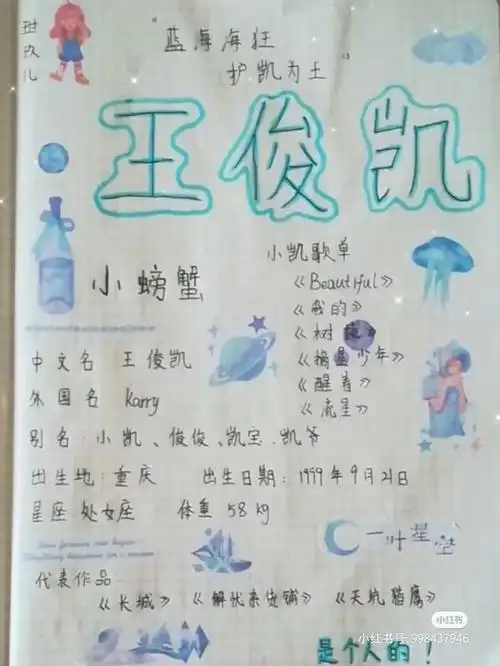 甜玖儿
蓝海海狂
护凯为土
王俊凯
小螃蟹
小凯歌单
《Beautiful》
《我的》
《树》
《摘星少年》
《醒着》
《流星》
中文名 王俊凯
外国名 Karry
别名:小凯、俊俊、凯宝、凯爷
出生地:重庆 出生日期:1999年9月21日
星座 处女座 体重 58kg
一叶星空
代表作品
《长城》《解忧杂货铺》《天坑猎鹰》
是个人的!
小红书
小红书号:998437946